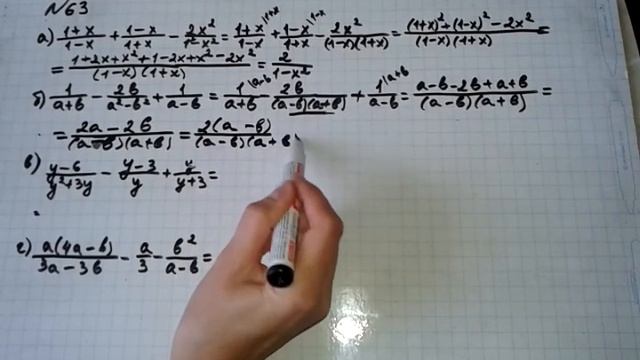 №63
а) (1+x)/(1-x) + (1-x)/(1+x) - 2x²/(1-x²) = (1+x)/(1-x) |1+x + (1-x)/(1+x) |1-x - 2x²/((1-x)(1+x)) = ((1+x)²+(1-x)²-2x²)/((1-x)(1+x)) =
= (1+2x+x²+1-2x+x²-2x²)/((1-x)(1+x)) = 2/(1-x²)
б) 1/(a+b) - 2b/(a²-b²) + 1/(a-b) = 1/(a+b) |a-b 2b/((a-b)(a+b)) + 1/(a-b) |a+b = (a-b-2b+a+b)/((a-b)(a+b)) =
= (2a-2b)/((a-b)(a+b)) = 2(a-b)/((a-b)(a+b
в) (y-6)/(y²+3y) - (y-3)/y + y/(y+3) =
г) a(4a-b)/(3a-3b) - a/3 - b²/(a-b) =